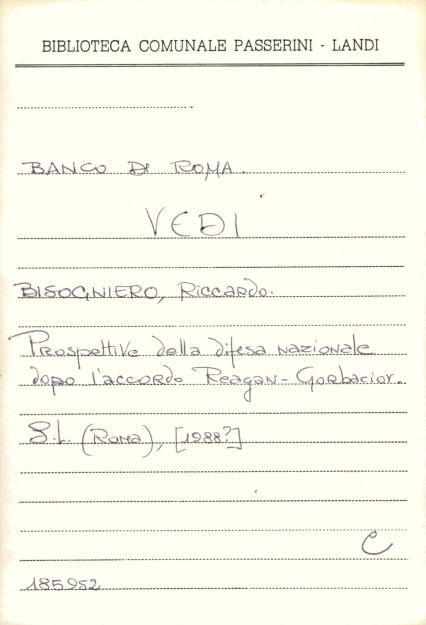 BIBLIOTECA COMUNALE PASSERINI - LANDI
BANCO DI ROMA.
VEDI
BISOGNIERO, Riccardo.
Prospettive della difesa nazionale
dopo l'accordo Reagan - Gorbaciov.
S.l. (Roma), [1988?]
C
185952